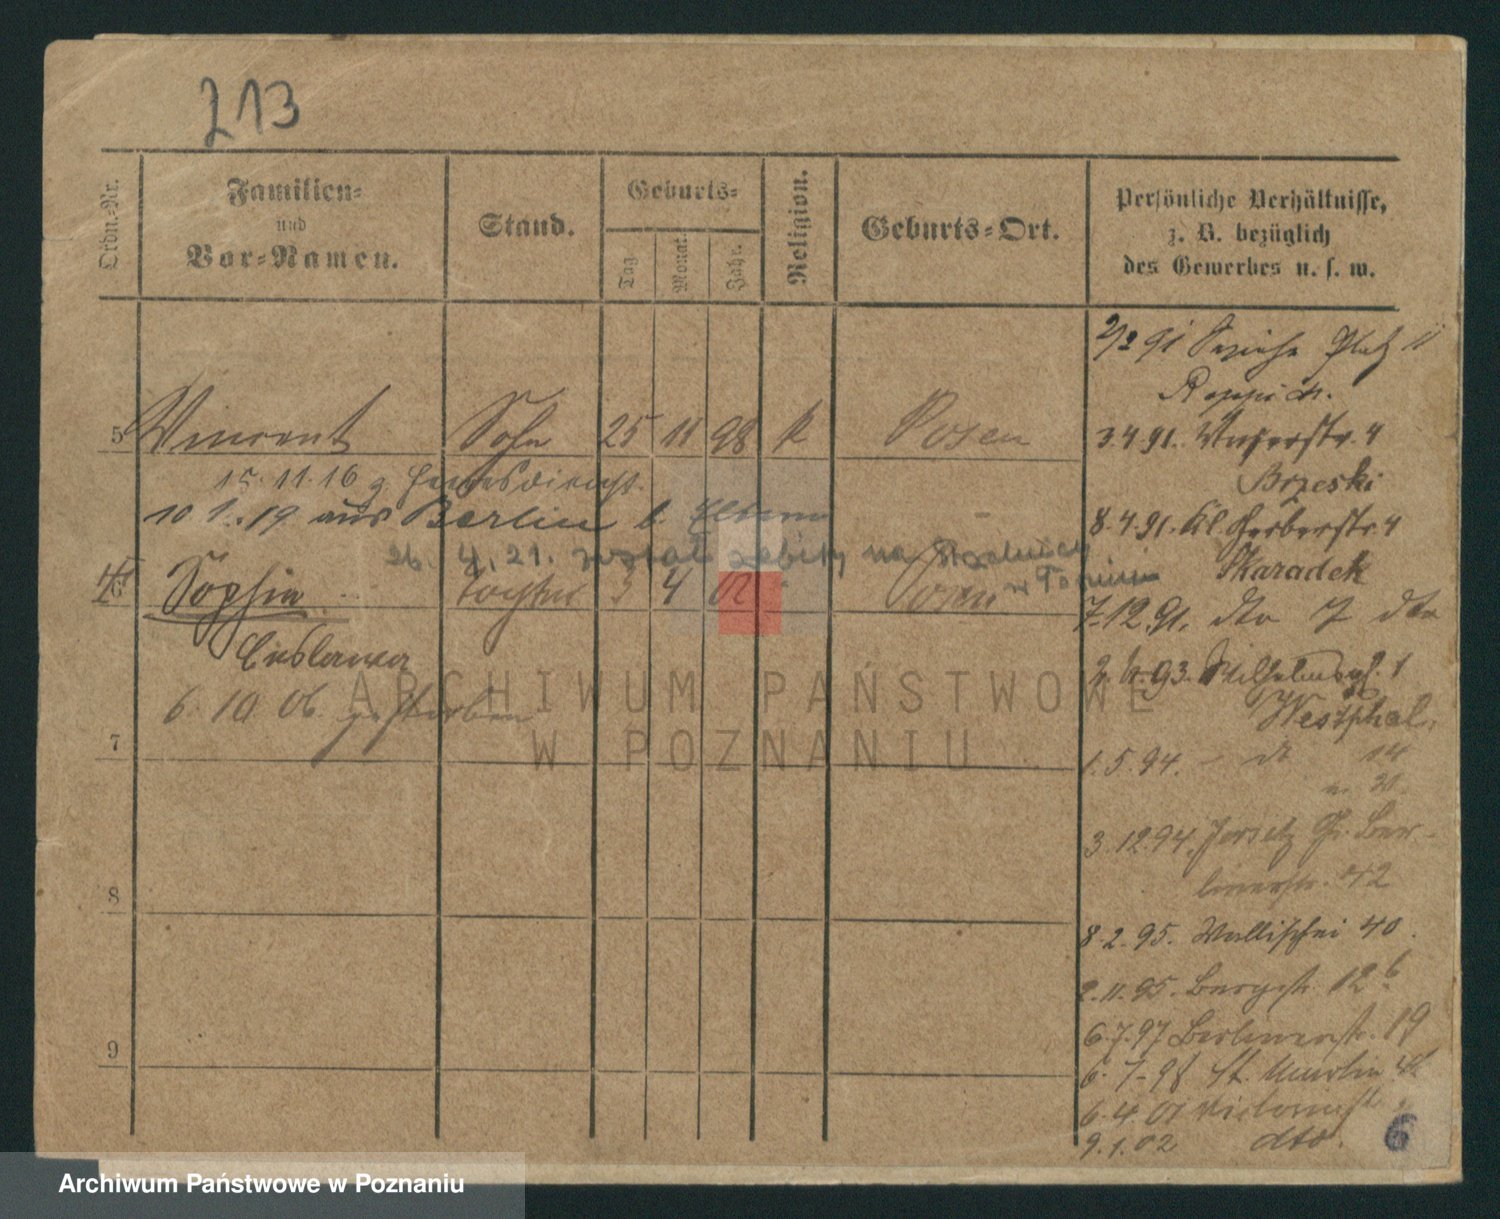 213
Ordn.-Nr.
Familien-
und
Vor-Namen.
Stand.
Geburts-
Tag.
Monat.
Jahr.
Religion.
Geburts-Ort.
Persönliche Verhältnisse,
z. B. bezüglich
des Gewerbes u. s. w.
5 Vincent Sohn 25 11 98 k Posen
15.11.16 z. Heeresdienst
10 1. 19 aus Berlin b.
26. 4. 21. został zabity na
w Toruniu
6 Sophie Tochter 3 4 02 Posen
Ceslawa
6. 10. 06. gestorben
7
8
9
2/2 91 Platz 11
3.4.91. 4
Brzeski
8.4.91. Kl. Gerberstr. 4
Skaradek
7.12.91. dto 7 dto
93. Wilhelmspl. 1
Westphal.
1.5.94. – dt 14
3.12.94. Jersitz Gr. Ber-
linerstr. 42
8.2.95. Wallischei 40.
2.11.95. Bergstr. 12 b
6.7.97 Berlinerstr. 19
6.7.98 St. Martin
6.4 01 Victoriastr.
9.1.02 dto.
6
ARCHIWUM PAŃSTWOWE
W POZNANIU
Archiwum Państwowe w Poznaniu